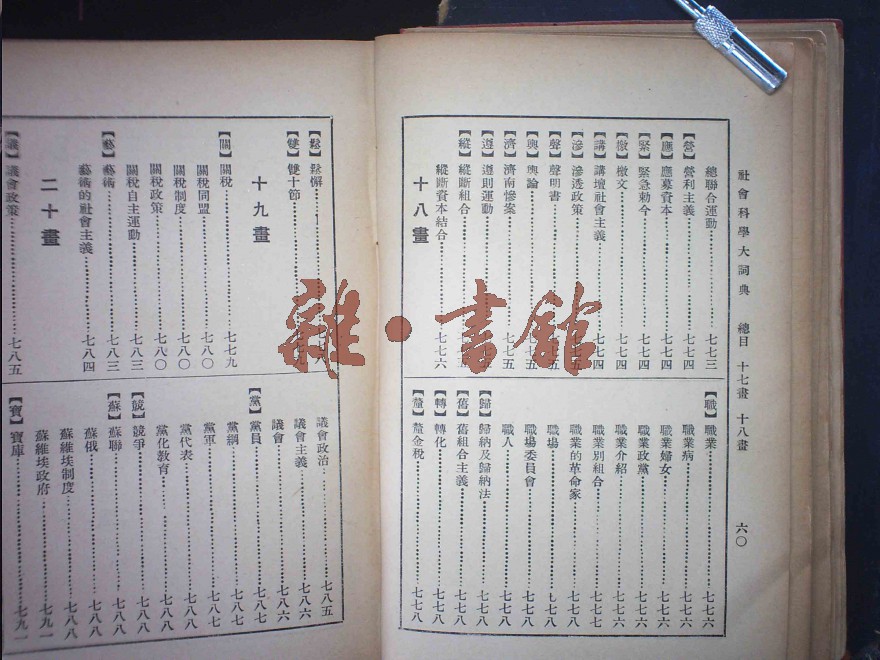 社會科學大詞典 總目 十七畫 十八畫 六〇
總聯合運動 七七三
【營】營利主義 七七四
【應】應募資本 七七四
【緊】緊急勅令 七七四
【檄】檄文 七七四
【講】講壇社會主義 七七四
【滲】滲透政策
【聲】聲明書
【輿】輿論
【濟】濟南慘案 七七五
【遵】遵則運動
【縱】縱斷組合
縱斷資本結合 七七六
十八畫
【職】職業 七七六
職業病 七七六
職業婦女 七七六
職業政黨 七七六
職業介紹 七七六
職業別組合 七七七
職業的革命家 七七八
職場 七七八
職場委員會 七七八
職人 七七八
【歸】歸納及歸納法 七七八
【舊】舊組合主義 七七八
【轉】轉化 七七八
【釐】釐金稅 七七八
【鬆】鬆懈
【雙】雙十節
十九畫
【關】關稅 七七九
關稅同盟 七八〇
關稅制度 七八〇
關稅政策 七八〇
關稅自主運動 七八三
【藝】藝術 七八三
藝術的社會主義 七八四
二十畫
【議】議會政策 七八五
議會政治 七八五
議會主義 七八六
議會 七八六
【黨】黨員 七八七
黨綱 七八七
黨軍 七八七
黨代表 七八八
黨化教育 七八八
【競】競爭 七八八
【蘇】蘇聯 七八八
蘇俄 七八八
蘇維埃制度 七八八
蘇維埃政府 七九一
【寶】寶庫 七九一
雜·書館